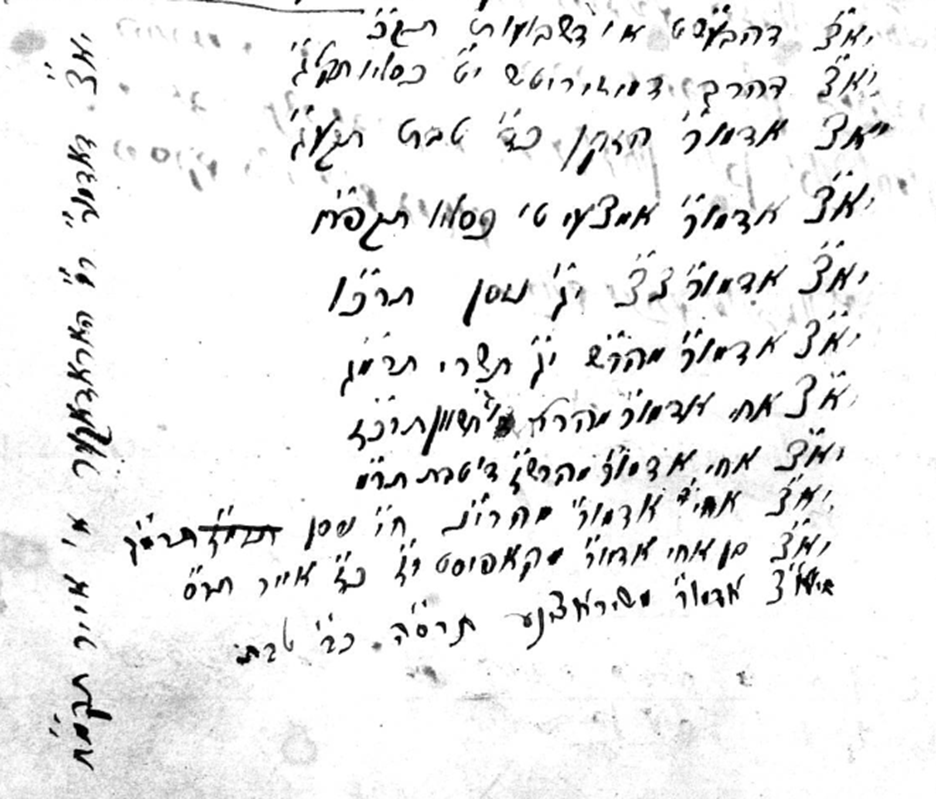 יאצ״ דהבעש״ט א׳ דשבועות תק״כ
יאצ״ דהרב דמעזריטש י״ט כסליו תקל״ג
יאצ״ אדמו״ר הזקן כ״ד טבת תקע״ג
יאצ״ אדמו״ר אמצעי ט׳ כסליו תקפ״ח
יאצ״ אדמו״ר צ״צ י״ג ניסן תרכ״ו
יאצ״ אדמו״ר מהר״ש י״ג תשרי תרמ״ג
יאצ״ אחי אדמו״ר מהרי״ל חשוון תרכ״ז
יאצ״ אחי אדמו״ר מהרש״ז ד׳ טבת תר״מ
יאצ״ אחי אדמו״ר מהרי״נ ח״י ניסן
יאצ״ בן אחי אדמו״ר מקאפוסט ז״ל כ״ז אייר תר״ס
יאצ״ אדמו״ר משיראצנע תרס״ה כ״ב טבת
יאצ״ דאדמו״ר ר״מ האראדאקער א׳ אייר תקמ״ח